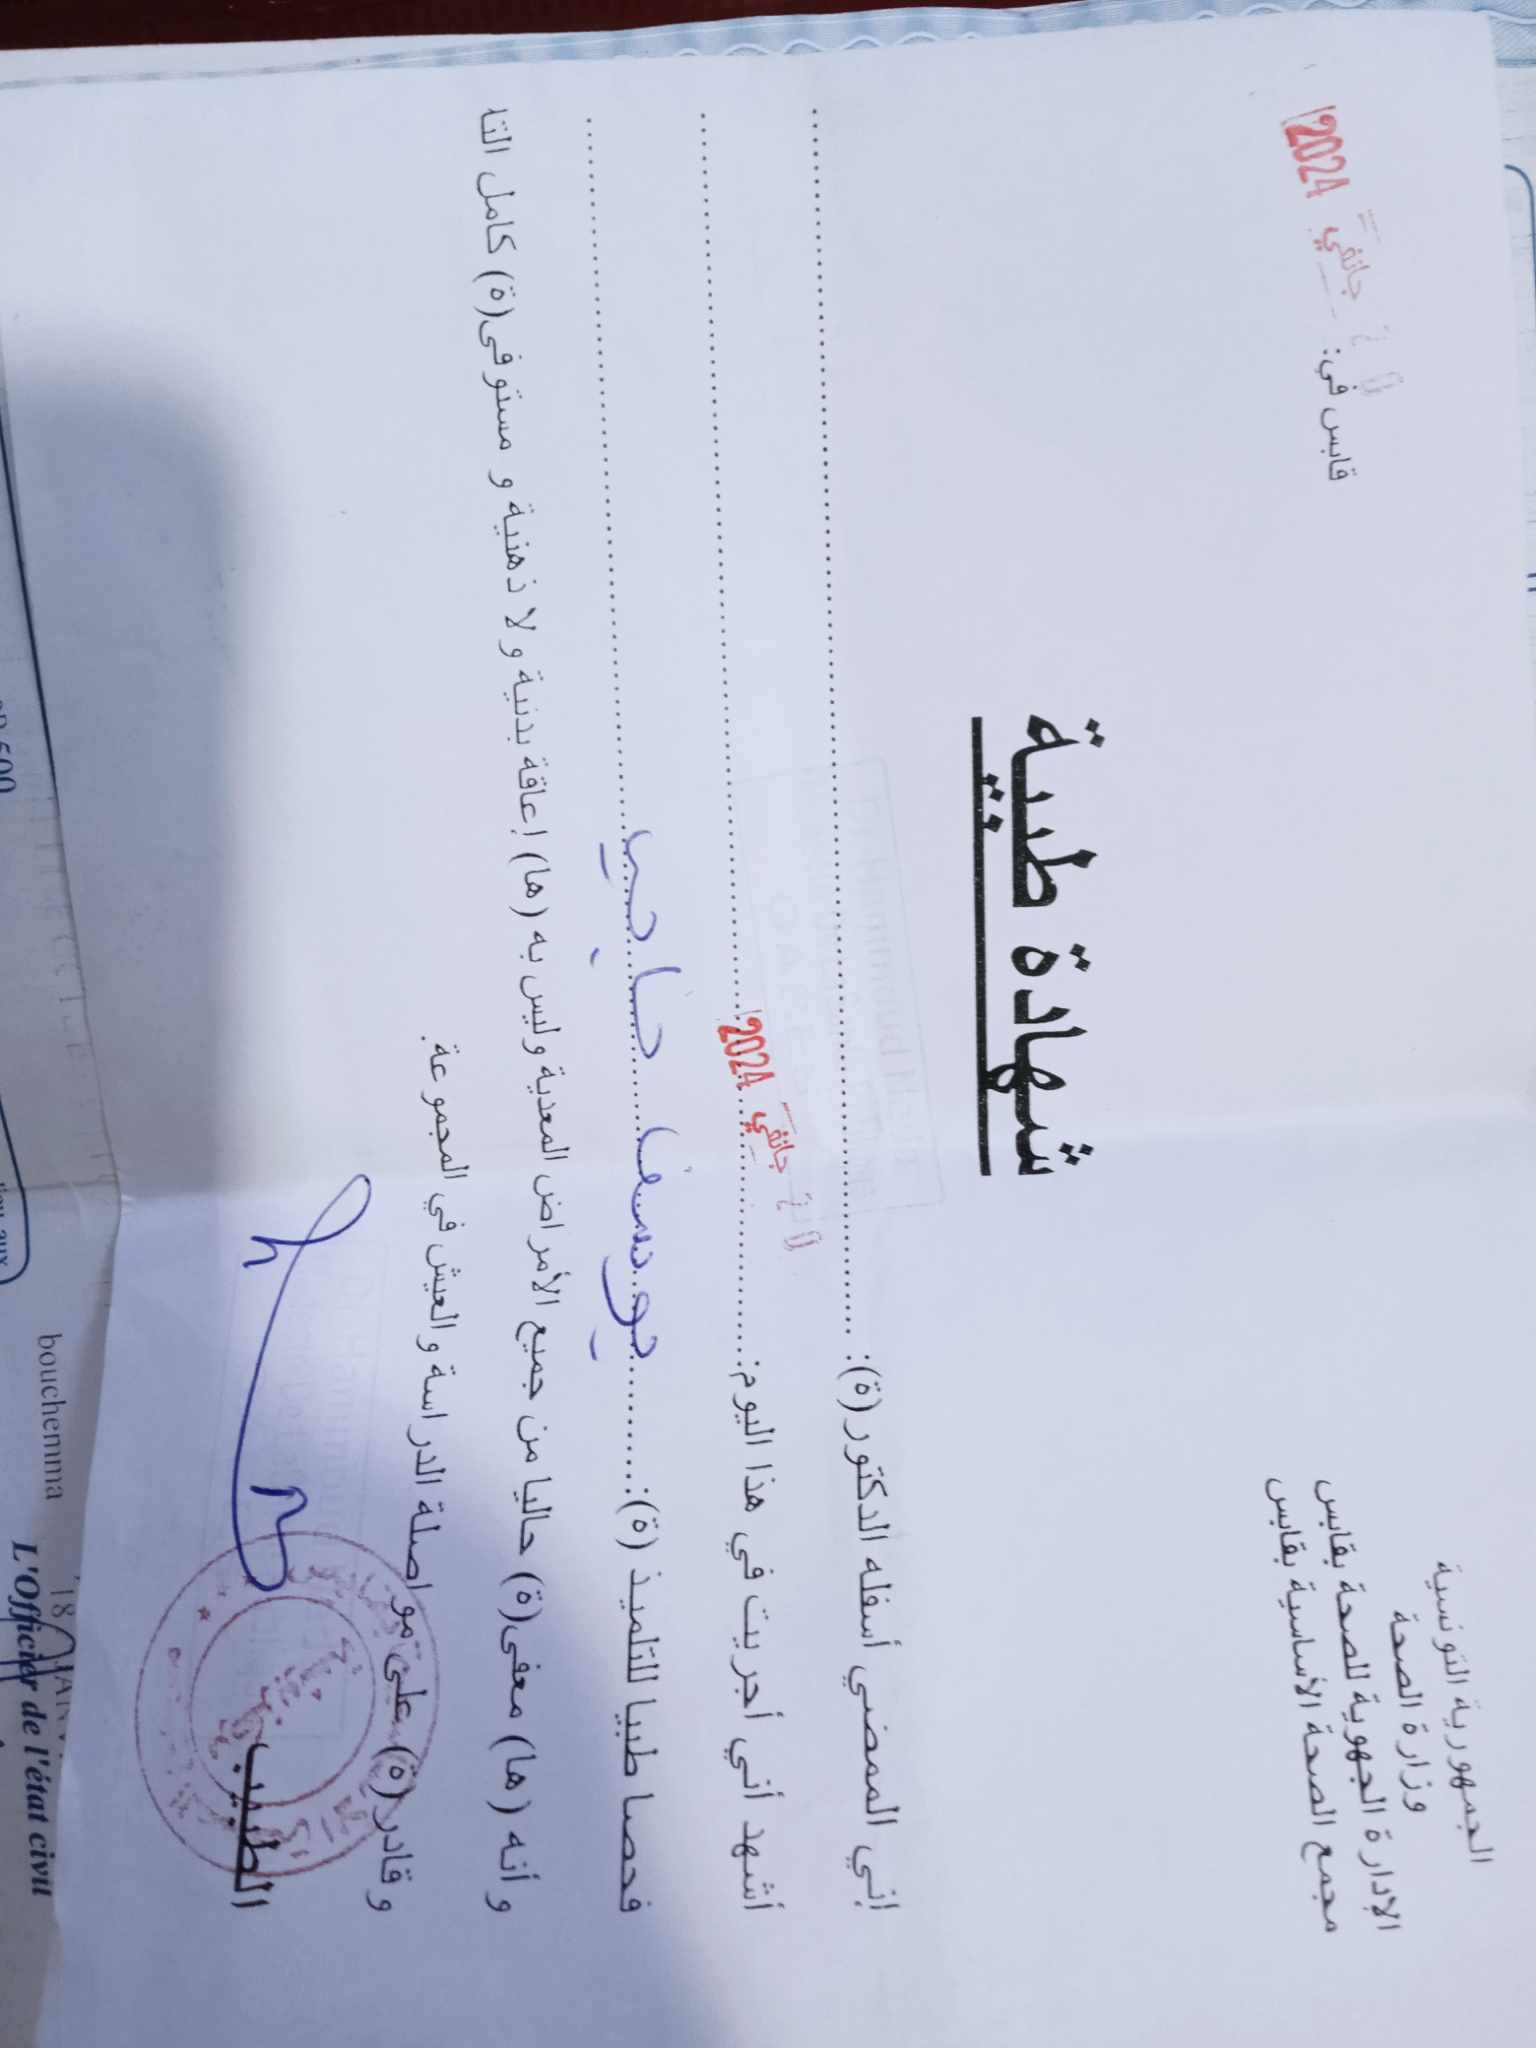 الجمهورية التونسية
وزارة الصحة
الإدارة الجهوية للصحة بقابس
مجمع الصحة الأساسية بقابس
قابس في: جانفي 2024
شهادة طبية
إني الممضي أسفله الدكتور(ة):
أشهد أني أجريت في هذا اليوم: جانفي 2024
فحصا طبيا للتلميذ (ة): يوسف حاجي
و أنه (ها) معفى(ة) حاليا من جميع الأمراض المعدية وليس به (ها) إعاقة بدنية و لا ذهنية و مستوفى(ة) كامل التلا
و قادر(ة) على مواصلة الدراسة و العيش في المجموعة.
الطبيب
bouchemma
18 JANV
L'Officier de l'état civil
500